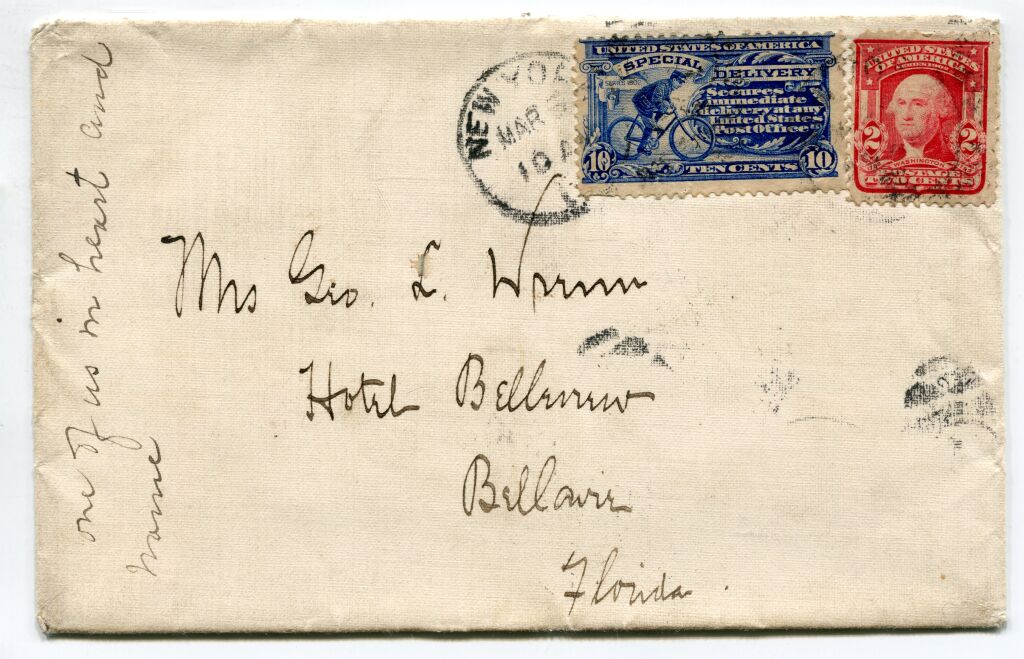 NEW YO
MAR
10 A
UNITED STATES OF AMERICA
SPECIAL DELIVERY
Secures
immediate
delivery at any
United States
Post Office
10 TEN CENTS 10
UNITED STATES
OF AMERICA
SERIES 1902
2 2
WASHINGTON
POSTAGE
TWO CENTS
Mrs Geo. L.
Hotel Belleview
Bellavie
Florida.
one of us in heart and
name